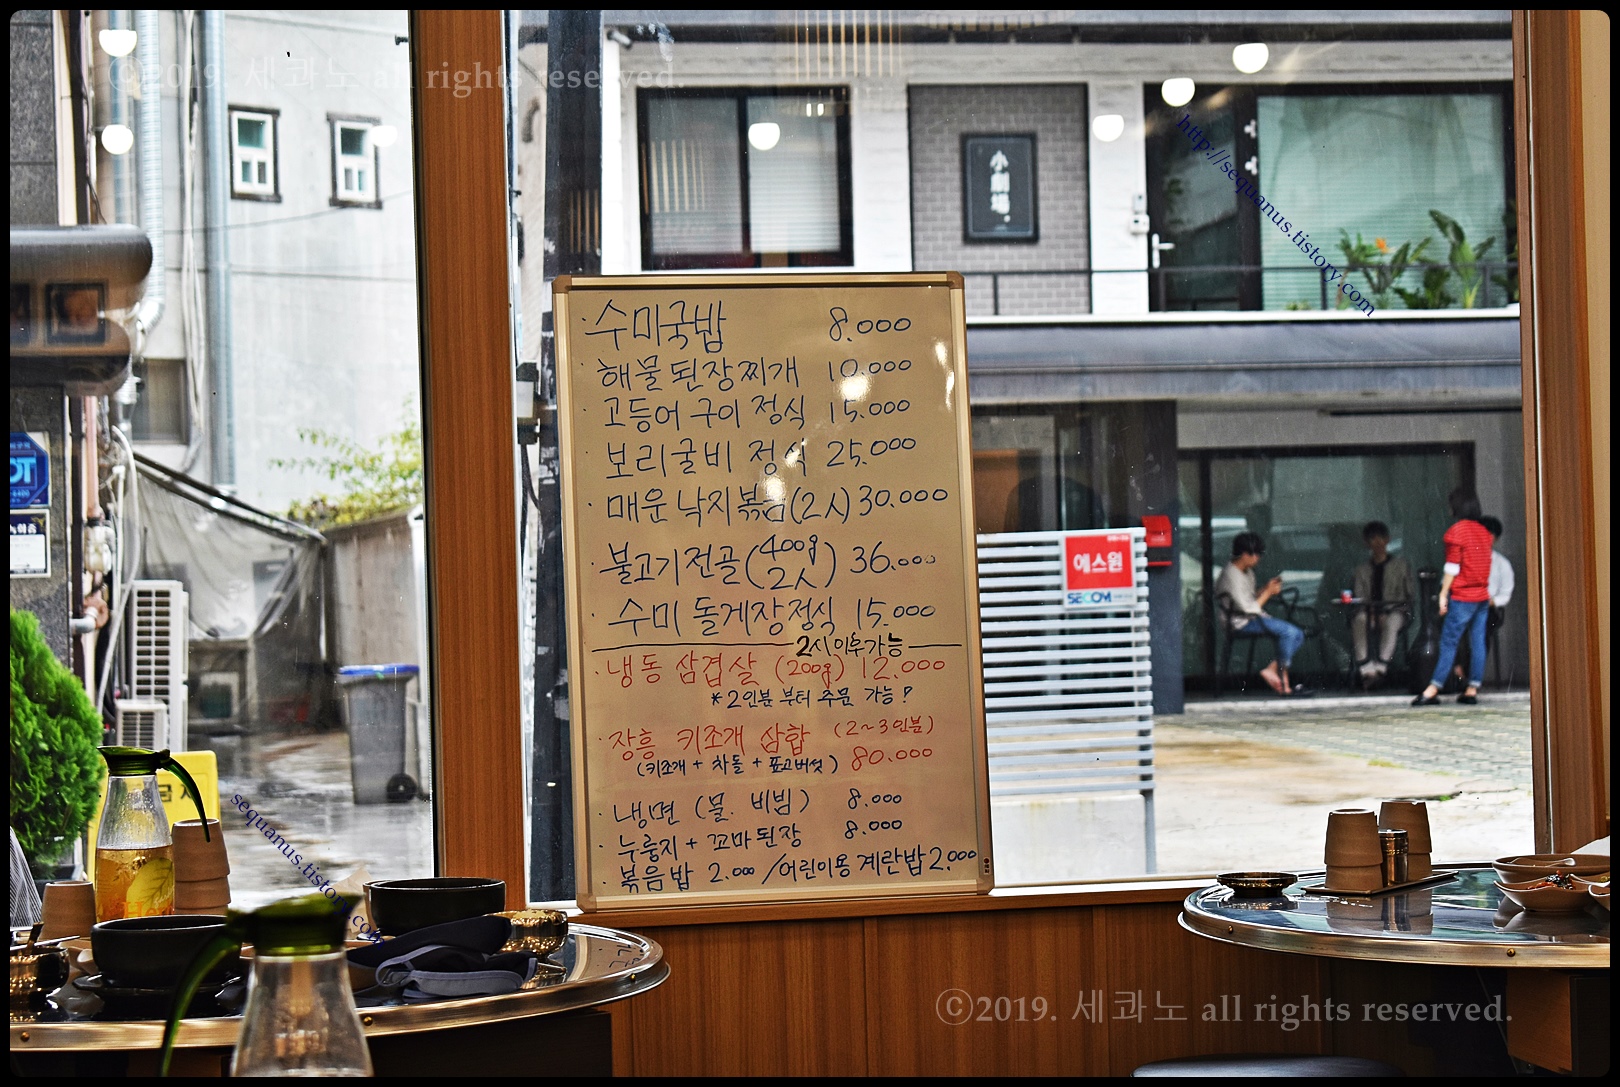 ⓒ2019. 세콰노 all rights reserved.
http://sequanus.tistory.com
小劇場.
· 수미국밥 8.000
· 해물 된장찌개 10.000
· 고등어 구이 정식 15.000
· 보리굴비 정식 25.000
· 매운 낙지볶음(2人) 30.000
· 불고기전골(400g 2人) 36.000
· 수미 돌게장정식 15.000
2시 이후가능
· 냉동 삼겹살 (200g) 12.000
*2인분 부터 주문 가능!
· 장흥 키조개 삼합 (2~3인분)
(키조개 + 차돌 + 표고버섯) 80.000
· 냉면 (물. 비빔) 8.000
· 누룽지 + 꼬마된장 8.000
· 볶음밥 2.000 / 어린이용 계란밥 2.000
에스원
SECOM
sequanus.tistory.com
ⓒ2019. 세콰노 all rights reserved.